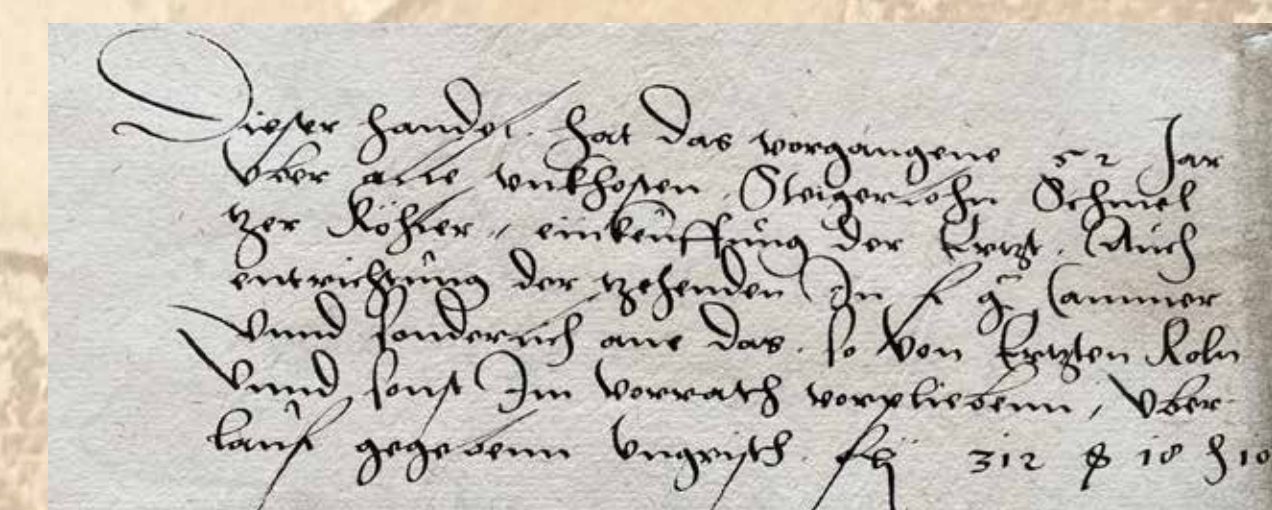 Dieser handel hat das vorgangene 52 Jar
Vber alle vnkhosten, Steigerlohn Schmel
tzer Köhler, einkeuffung der Ertzt. Auch
entrichtung der tzehenden In f g Cammer
Vnnd sonderlich ane das. so von Ertzten Koln
Vnnd sonst Im vorrath vorpliebenn, Vber
lauf gegebenn Vngrisch fl 312 ꝑ 18 ₰ 10